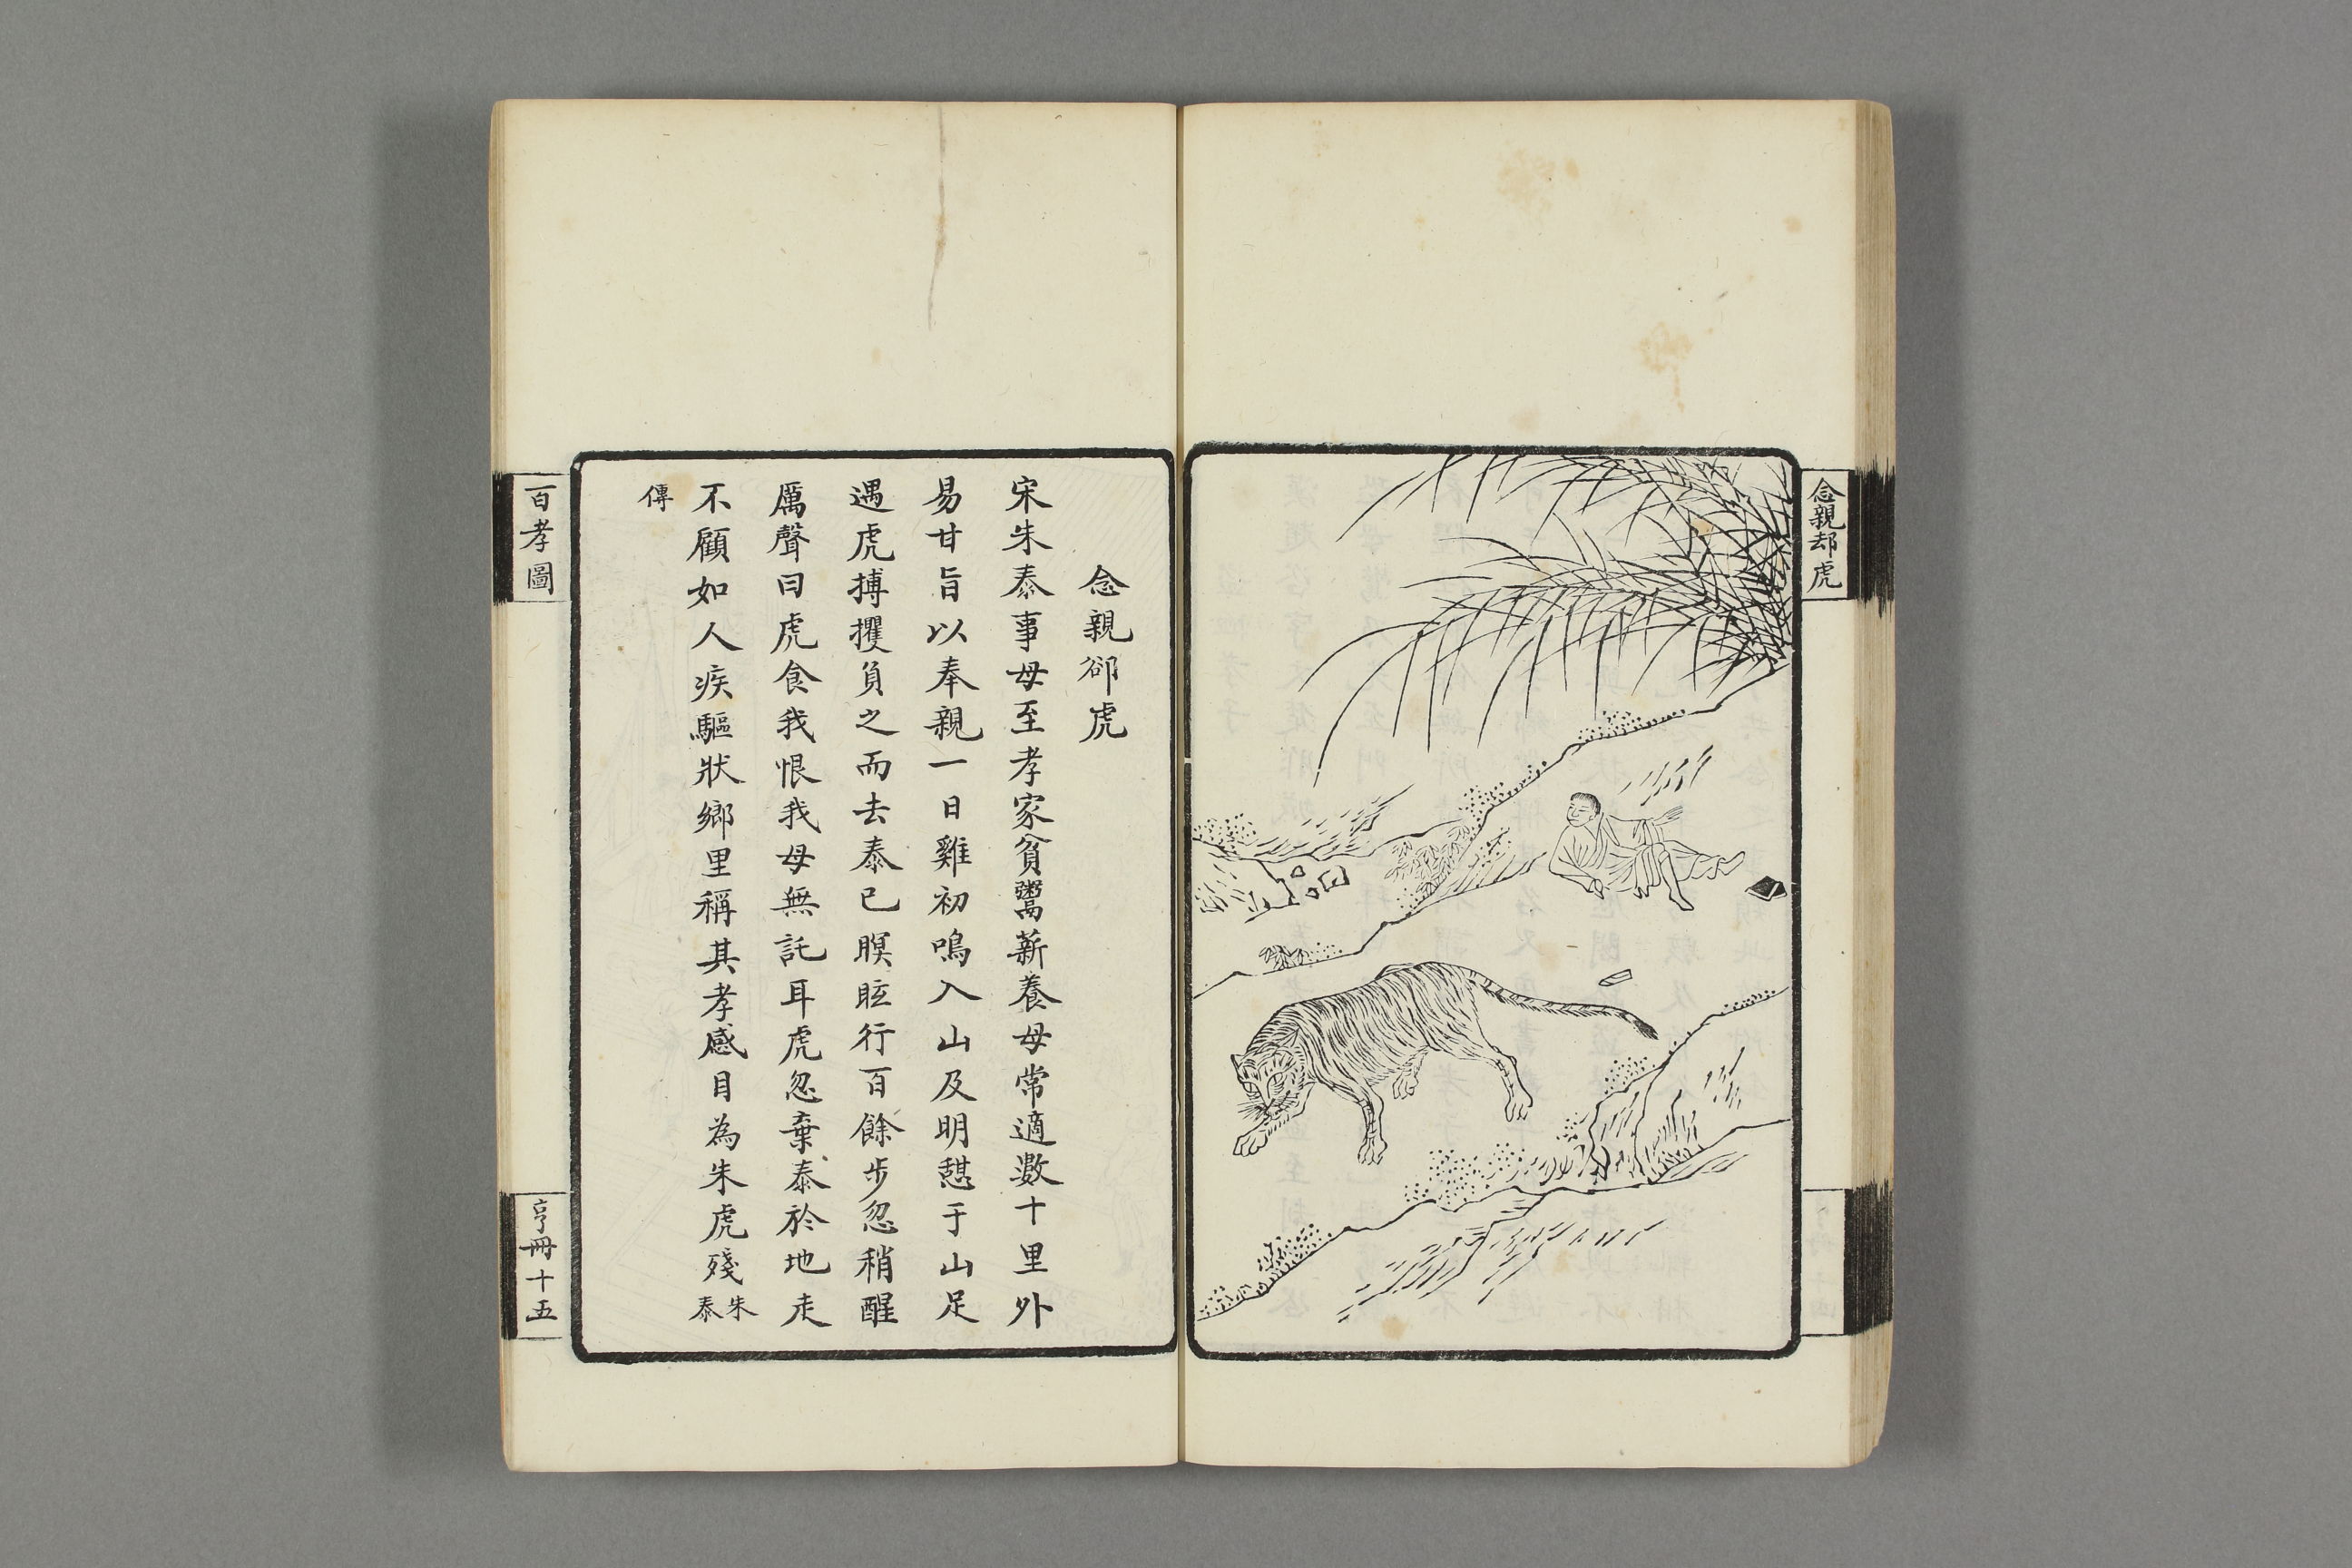 念親却虎
念親卻虎
宋朱泰事母至孝家貧鬻薪養母常適數十里外
易甘旨以奉親一日雞初鳴入山及明憇于山足
遇虎搏攫負之而去泰已瞑眩行百餘步忽稍醒
厲聲曰虎食我恨我母無託耳虎忽棄泰於地走
不顧如人疾驅狀鄉里稱其孝感目為朱虎殘朱泰
傳
百孝圖
亨冊十五